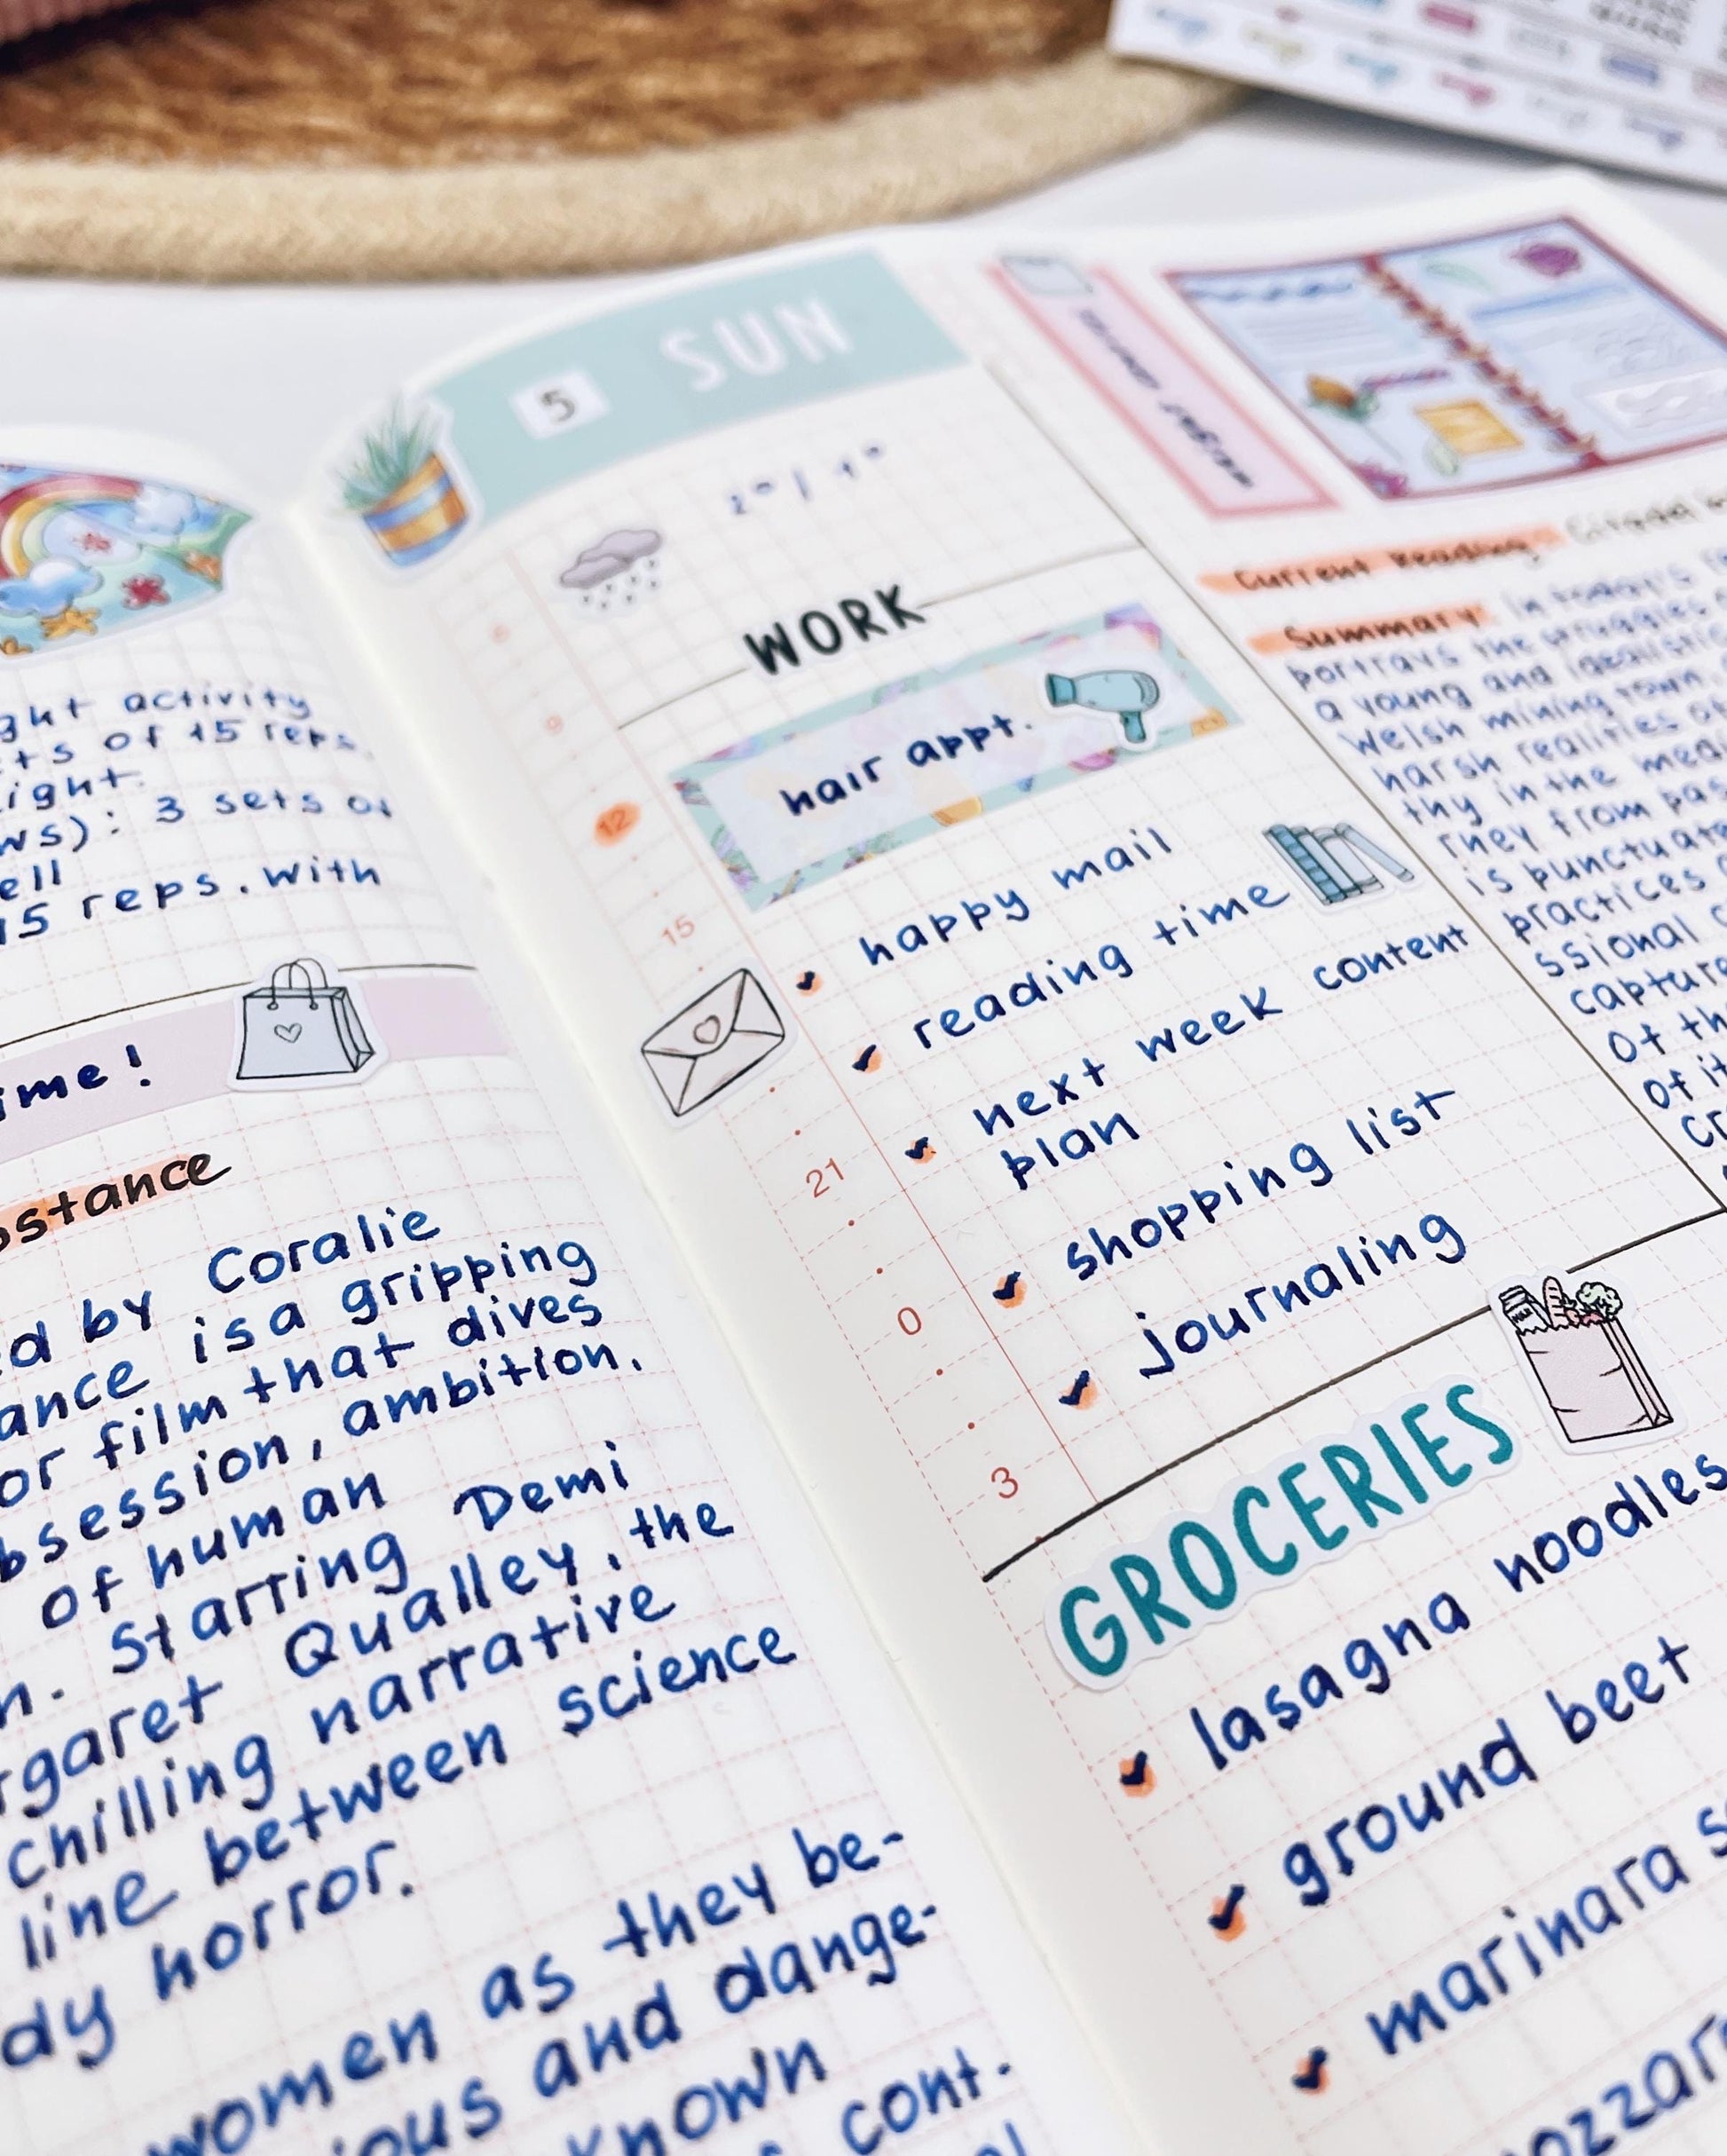 ght activity
ts of 15 reps.
ight.
ws): 3 sets of
ell
15 reps. with
ime!
stance
d by Coralie
ance is a gripping
or film that dives
bsession, ambition.
of human
n. Starring Demi
rgaret Qualley, the
chilling narrative
line between science
dy horror.
women as they be-
ious and dange-
known
cont.
5 SUN
WORK
9
hair appt.
12
15
happy mail
reading time
next week content
plan
21
shopping list
0
journaling
3
GROCERIES
lasagna noodles
ground beef
marinara s
ozzar
Current Reading: Citadel
Summary: In today's
portrays the struggles
a young and idealistic
Welsh mining town,
harsh realities
thy in the medi
rney from pas
is punctuate
practices
ssional c
capture
of th
of it
cr